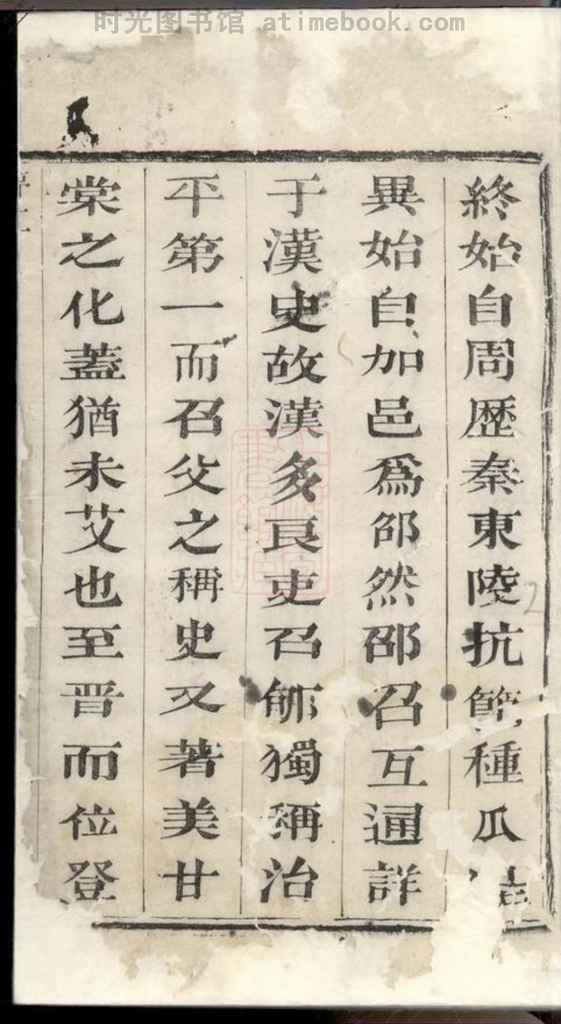 时光图书馆 atimebook.com
終始自周歷秦東陵抗節種瓜
異始自加邑爲邵然邵召互通詳
于漢史故漢多良吏召師獨稱治
平第一而召父之稱史又著美甘
棠之化蓋猶未艾也至晋而位登